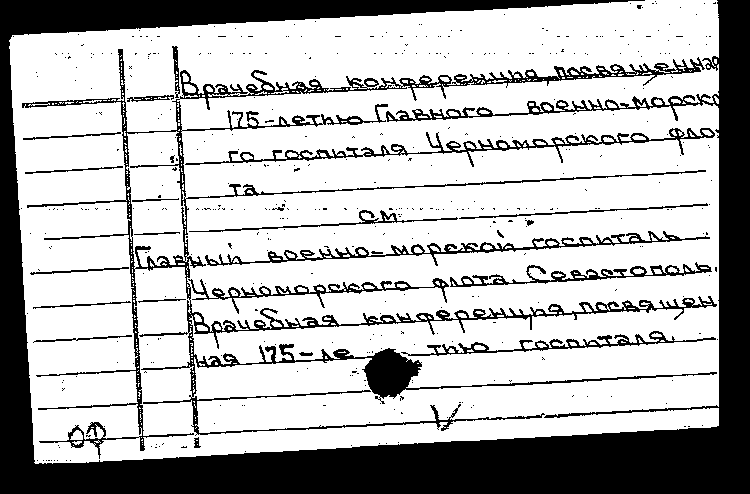 Врачебная конференция, посвященная
175-летию Главного военно-морско
го госпиталя Черноморского фло-
та.
см
Главный военно-морской госпиталь
Черноморского флота. Севастополь.
Врачебная конференция, посвящен
ная 175-ле тию госпиталя.
ОФ